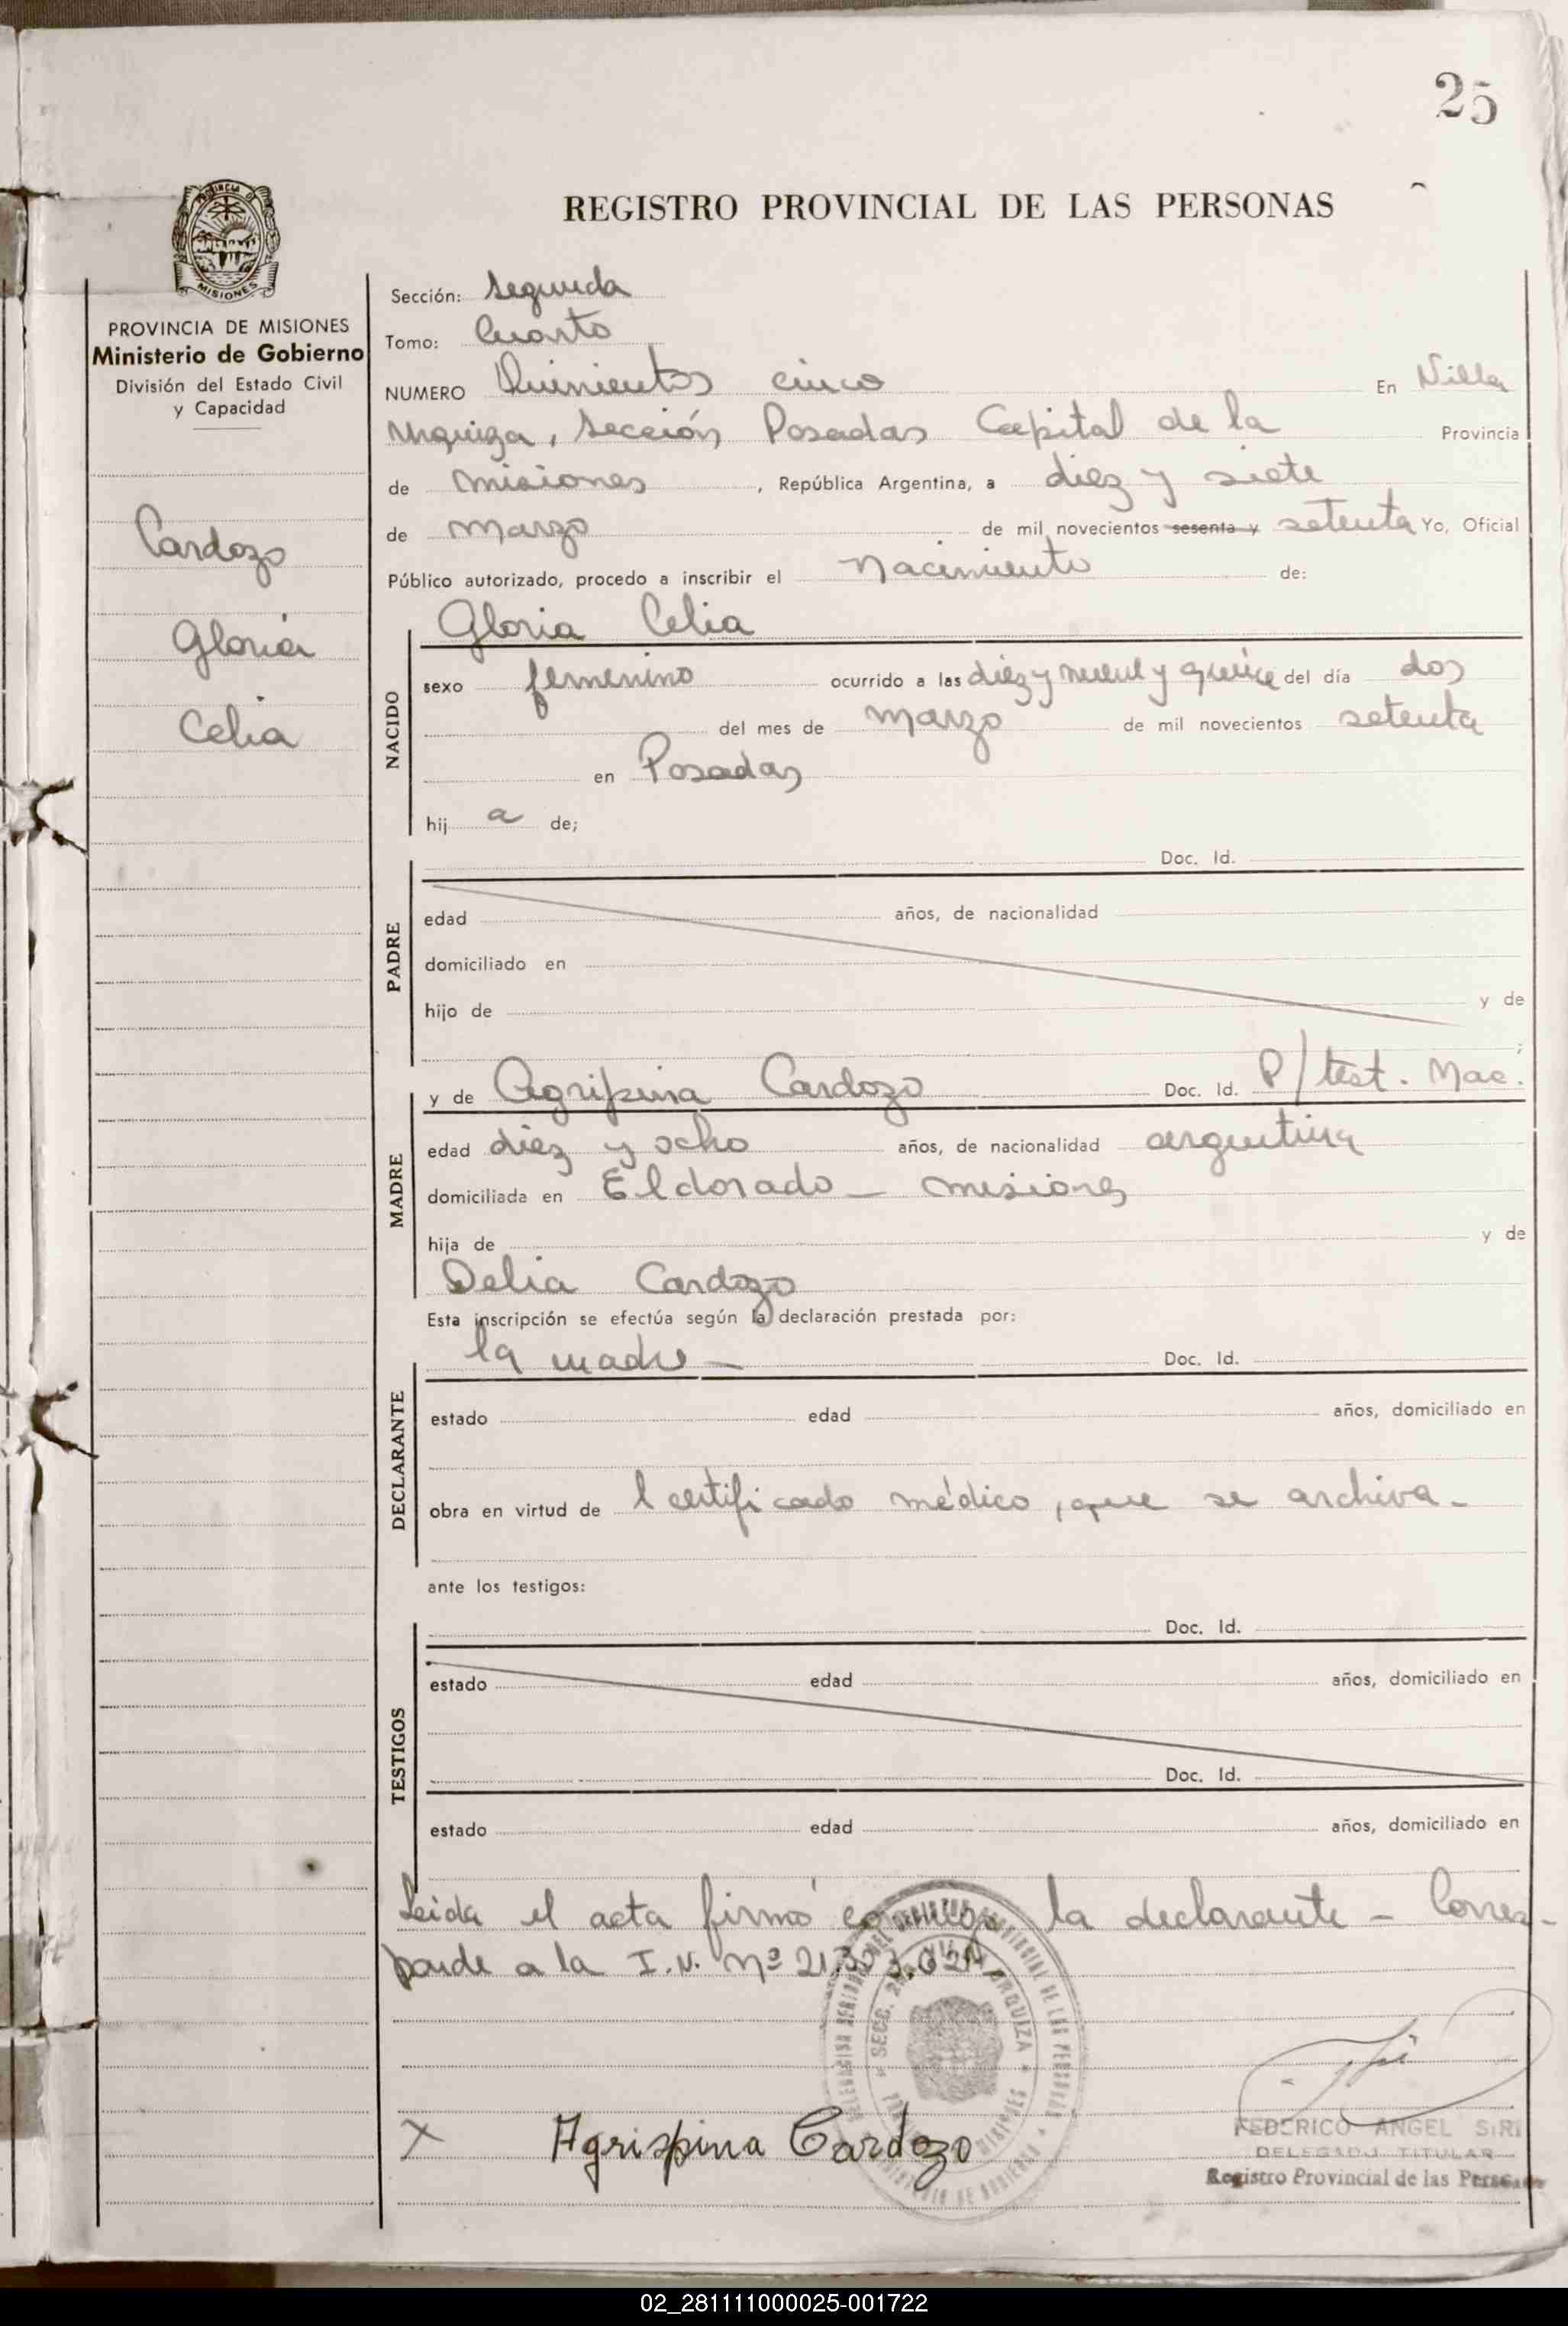 25
REGISTRO PROVINCIAL DE LAS PERSONAS
PROVINCIA DE MISIONES
Ministerio de Gobierno
División del Estado Civil
y Capacidad
Cardozo
Gloria
Celia
Sección: Segunda
Tomo: Cuarto
NUMERO Quinientos cinco En Villa
Urquiza, Sección Posadas Capital de la Provincia
de Misiones, República Argentina, a diez y siete
de Marzo de mil novecientos sesenta y setenta Yo, Oficial
Público autorizado, procedo a inscribir el Nacimiento de:
Gloria Celia
NACIDO
sexo femenino ocurrido a las diez y nueve y quince del día dos
del mes de Marzo de mil novecientos setenta
en Posadas
hij a de;
Doc. Id.
PADRE
edad años, de nacionalidad
domiciliado en
hijo de y de
;
y de Agripina Cardozo Doc. Id. P/test. Nac.
MADRE
edad diez y ocho años, de nacionalidad argentina
domiciliada en Eldorado - Misiones
hija de y de
Delia Cardozo
Esta inscripción se efectúa según la declaración prestada por:
la madre - Doc. Id.
DECLARANTE
estado edad años, domiciliado en
obra en virtud de l certificado médico, que se archiva.
ante los testigos:
Doc. Id.
TESTIGOS
estado edad años, domiciliado en
Doc. Id.
estado edad años, domiciliado en
Leida el acta firmó conmigo la declarante - Corres-
ponde a la I.N. Nº
Agrispina Cardozo
FEDERICO ANGEL SIRI
DELEGADO TITULAR
Registro Provincial de las Personas
02_281111000025-001722